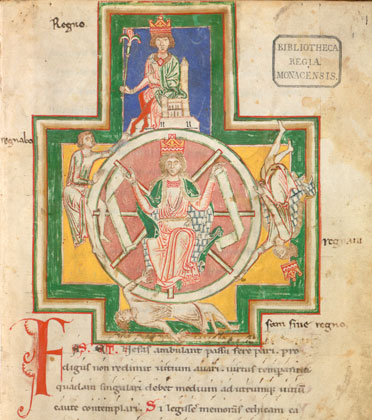 Regno.
BIBLIOTHECA
REGIA
MONACENSIS.
regnabo
regnaui
sum sine regno.
FAS. ET. Nefas ambulant passu fere pari. pro
digus non redimit uitium auari. uirtus temperantia
quadam singulari debet medium ad utrumque uitiū
caute contemplari. Si legisse memoras ethicam ca